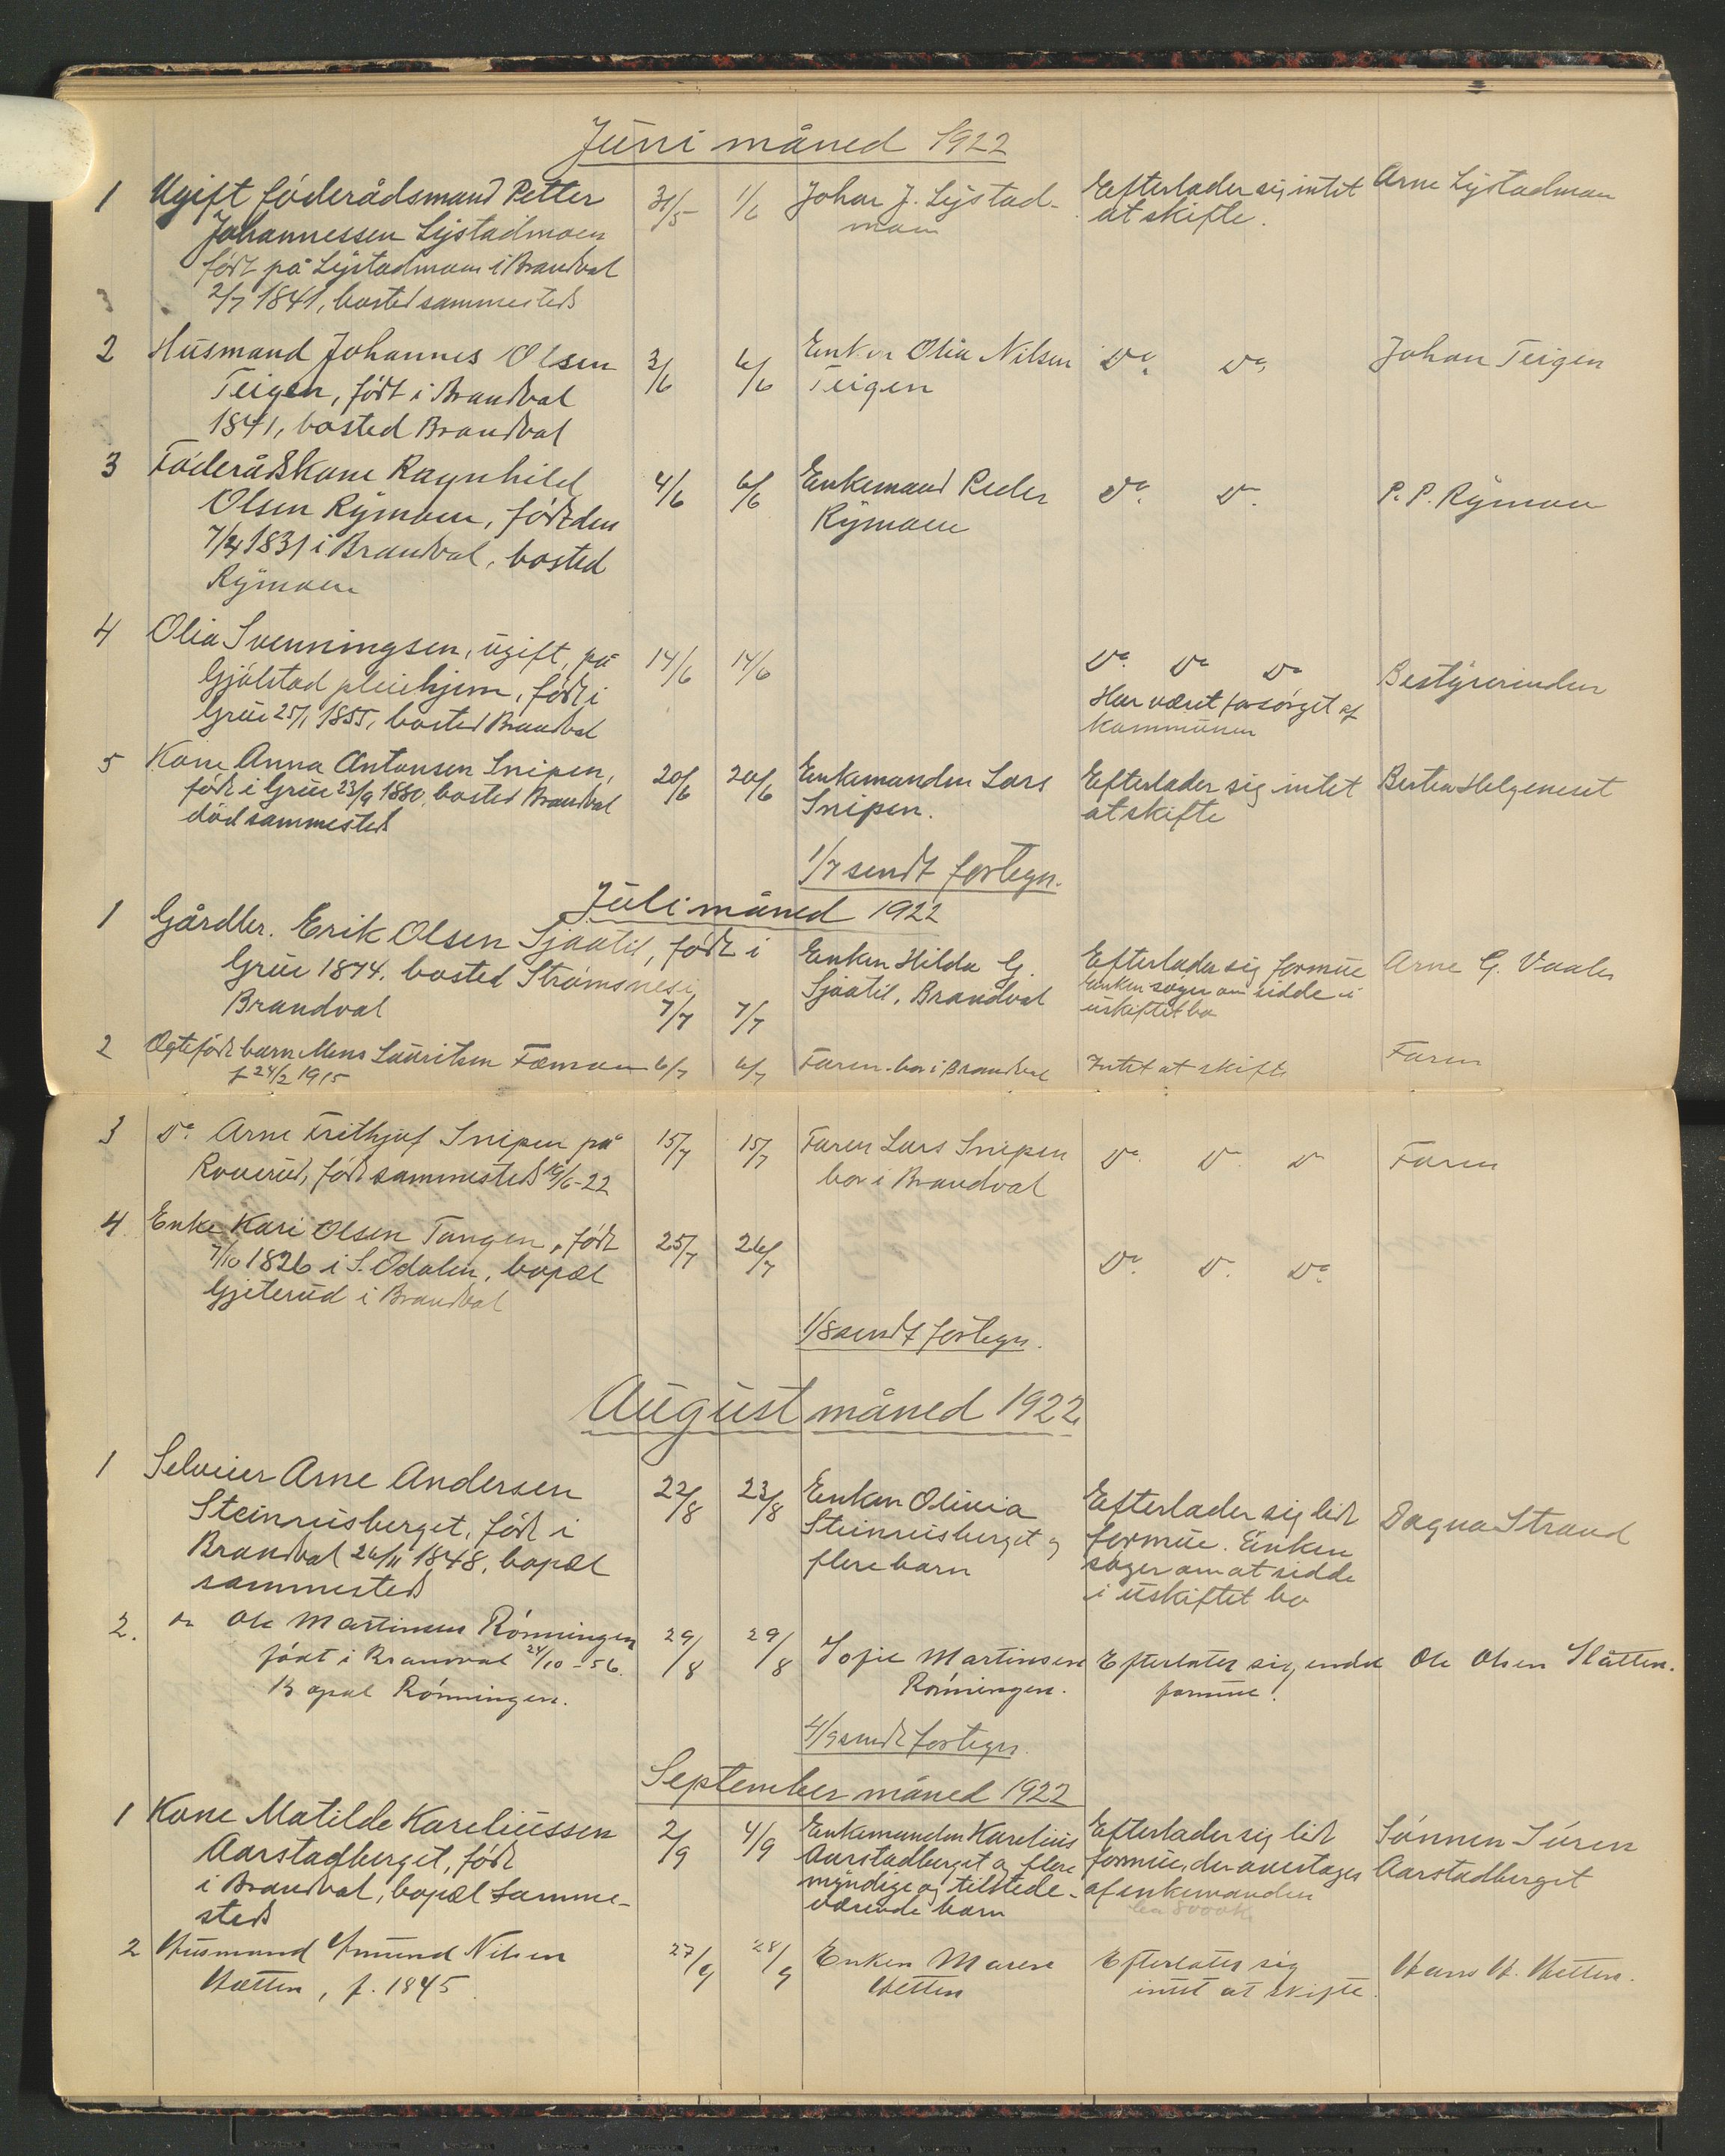 Juni måned 1922
1 Ugift föderådsmand Petter 31/5 1/6 Johan J. Lystad- Efterlader sig intet Arne Lystadmoen
Johannessen Lystadmoen moen at skifte.
født på Lystadmoen i Brandval
2/7 1841, bosted sammesteds
2 Husmand Johannes Olsen 3/6 6/6 Enken Olia Nilsen Do. Do. Johan Teigen
Teigen, født i Brandval Teigen
1841, bosted Brandval
3 Föderådskone Ragnhild 4/6 6/6 Enkemand Peder Do. Do. P. P. Rymoen
Olsen Rymoen, født den Rymoen
7/4 1831 i Brandval, bosted
Rymoen
4 Olia Svenningsen, ugift, på 14/6 14/6 Do. Do. Do. Bestyrerinden
Gjölstad pleiehjem, født i Har været forsörget af
Grue 25/1 1855, bosted Brandval kommunen
5 Kone Anna Antonsen Snipen, 20/6 20/6 Enkemanden Lars Efterlader sig intet Helgeneset
født i Grue 23/9 1880, bosted Brandval Snipen. at skifte
död sammesteds
1/7 sendt fortegn.
Juli måned 1922
1 Gårdbr. Erik Olsen Sjaatil, født i Enken Hilda G. Efterlader sig formue Arne G. Vaaler
Grue 1874. bosted Strömsnes i Sjaatil, Brandval Enken söger om sidde i
Brandval 7/7 7/7 uskiftet bo
2 Ægtefödt barn Mons Lauritsen Fæmoen 6/7 6/7 Faren. bor i Brandval Intet at skifte Faren
f 24/2 1915
3 Do. Arne Frithjof Snipen på 15/7 15/7 Faren Lars Snipen Do. Do. Do. Faren
Roverud, född sammesteds 19/6-22 bor i Brandval
4 Enke Kari Olsen Tangen, født 25/7 26/7 Do. Do. Do.
7/10 1826 i S. Odalen, bopæl
Gjeterud i Brandval
1/8 sendt fortegn.
August måned 1922.
1 Selveier Arne Andersen 22/8 23/8 Enken Olivia Efterlader sig lidt Dagna Strand
Steinreisberget, født i Steinreisberget og formue. Enken
Brandval 26/11 1848, bopæl flere barn söger om at sidde
sammesteds i uskiftet bo
2. do Ole Martinsen Rönningen 29/8 29/8 Sofie Martinsen Efterlater sig endel Ole Olsen Slåtten.
födt i Brandval 24/10-56. Rönningen. formue.
Bopæl Rönningen.
4/9 sendt fortegn.
September måned 1922
1 Kone Matilde Kareliussen 2/9 4/9 Enkemanden Karelius Efterlader sig lidt Sönnen Sören
Aarstadberget, født Aarstadberget og flere formue, der overtages Aarstadberget
i Brandval, bopæl samme- myndige og tilstede- af enkemanden
steds værende barn
2 Husmand Amund Nilsen 27/9 28/9 Enken Maren Efterlater sig Hans H. Hetten.
Hætten, f. 1845 Hetten intet at skifte.